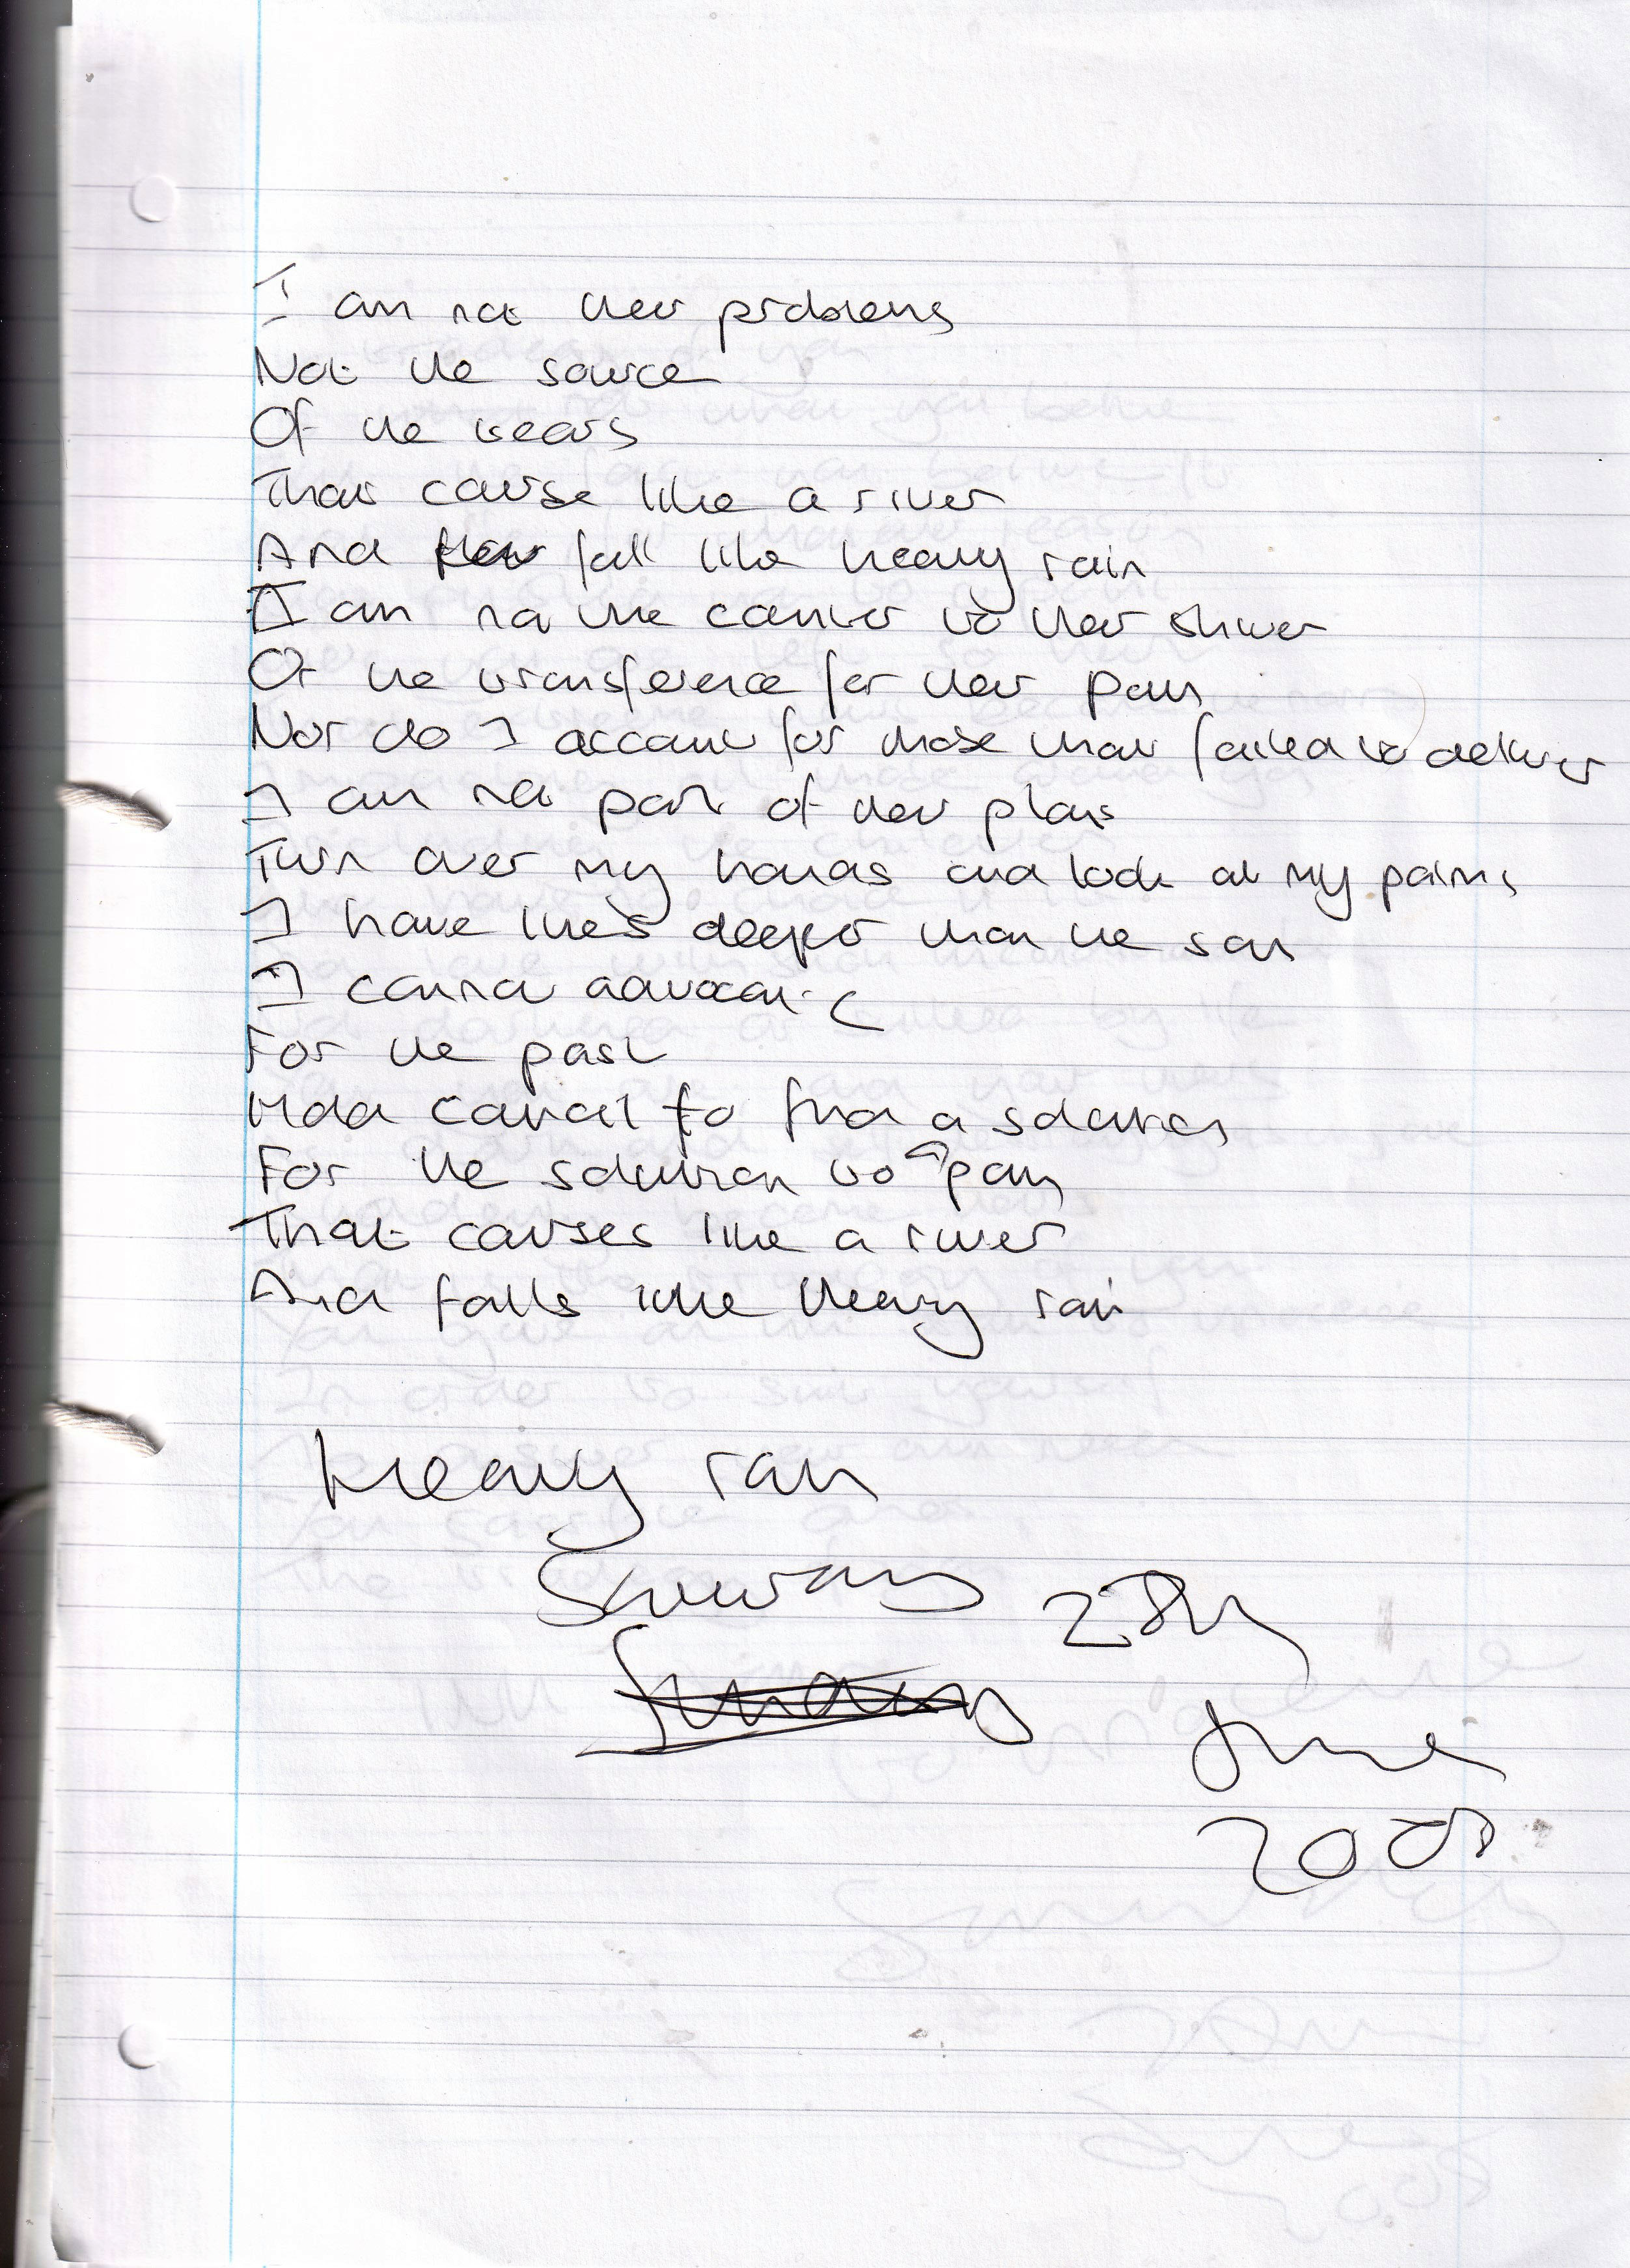 I am not their problems
Not the source
Of the tears
That course like a river
And fall like heavy rain
I am not the carrier to their shiver
Or the transference for their pain
Nor do I account for those that failed to deliver
I am not part of their plans
Turn over my hands and look at my palms
I have lines deeper than the
I cannot advocate
For the past
Hold council to find a solution
For the solution to pain
That courses like a river
And falls like heavy rain
Heavy rain
Saturday 28th
June
2008